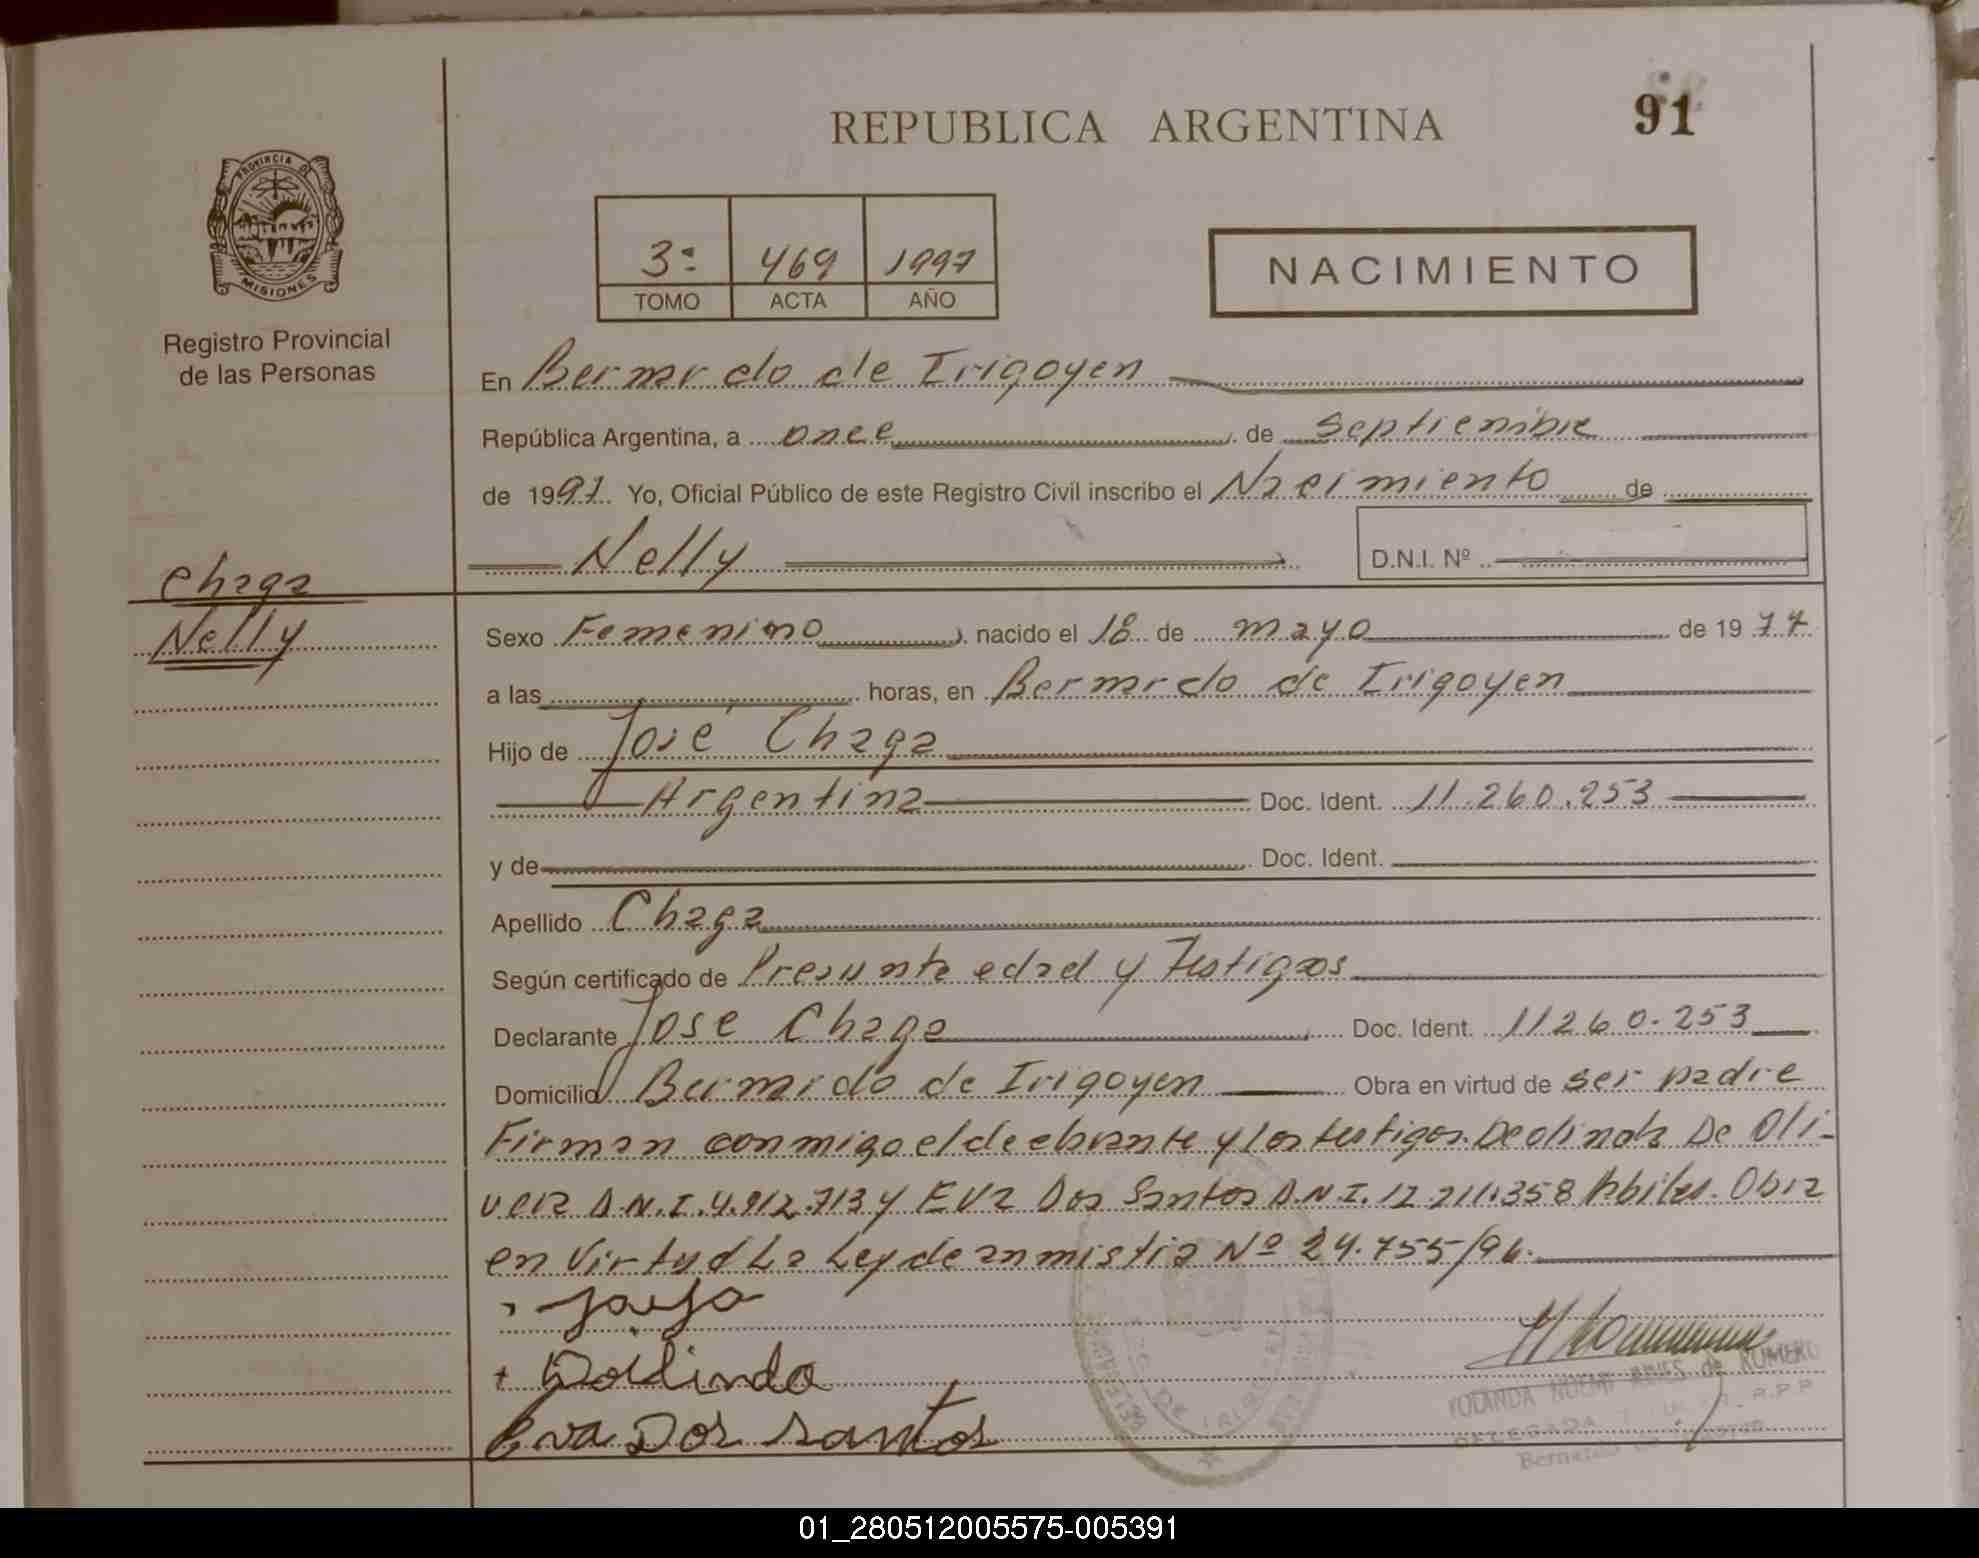 REPUBLICA ARGENTINA
91
PROVINCIA DE
MISIONES
Registro Provincial
de las Personas
3º 469 1997
TOMO ACTA AÑO
NACIMIENTO
En Bernardo de Irigoyen
República Argentina, a once de Septiembre
de 1997 Yo, Oficial Público de este Registro Civil inscribo el Nacimiento de
Nelly
D.N.I. Nº
Chaga
Nelly
Sexo Femenino nacido el 18 de mayo de 1974
a las horas, en Bernardo de Irigoyen
Hijo de José Chaga
Argentina Doc. Ident. 11.260.253
y de Doc. Ident.
Apellido Chaga
Según certificado de Presunta edad y Testigos
Declarante José Chaga Doc. Ident. 11260.253
Domicilio Bernardo de Irigoyen Obra en virtud de ser padre
Firman conmigo el declarante y los testigos. Deolinda De Oli-
vera D.N.I. 4.912.713 y Eva Dos Santos D.N.I. 12.211.358 Abiles. Obra
en Virtud La Ley de anmistia Nº 24.755/96.
Eva Dos Santos
YOLANDA NOEMI de ROMERO
DELEGADA R.P.P.
01_280512005575-005391